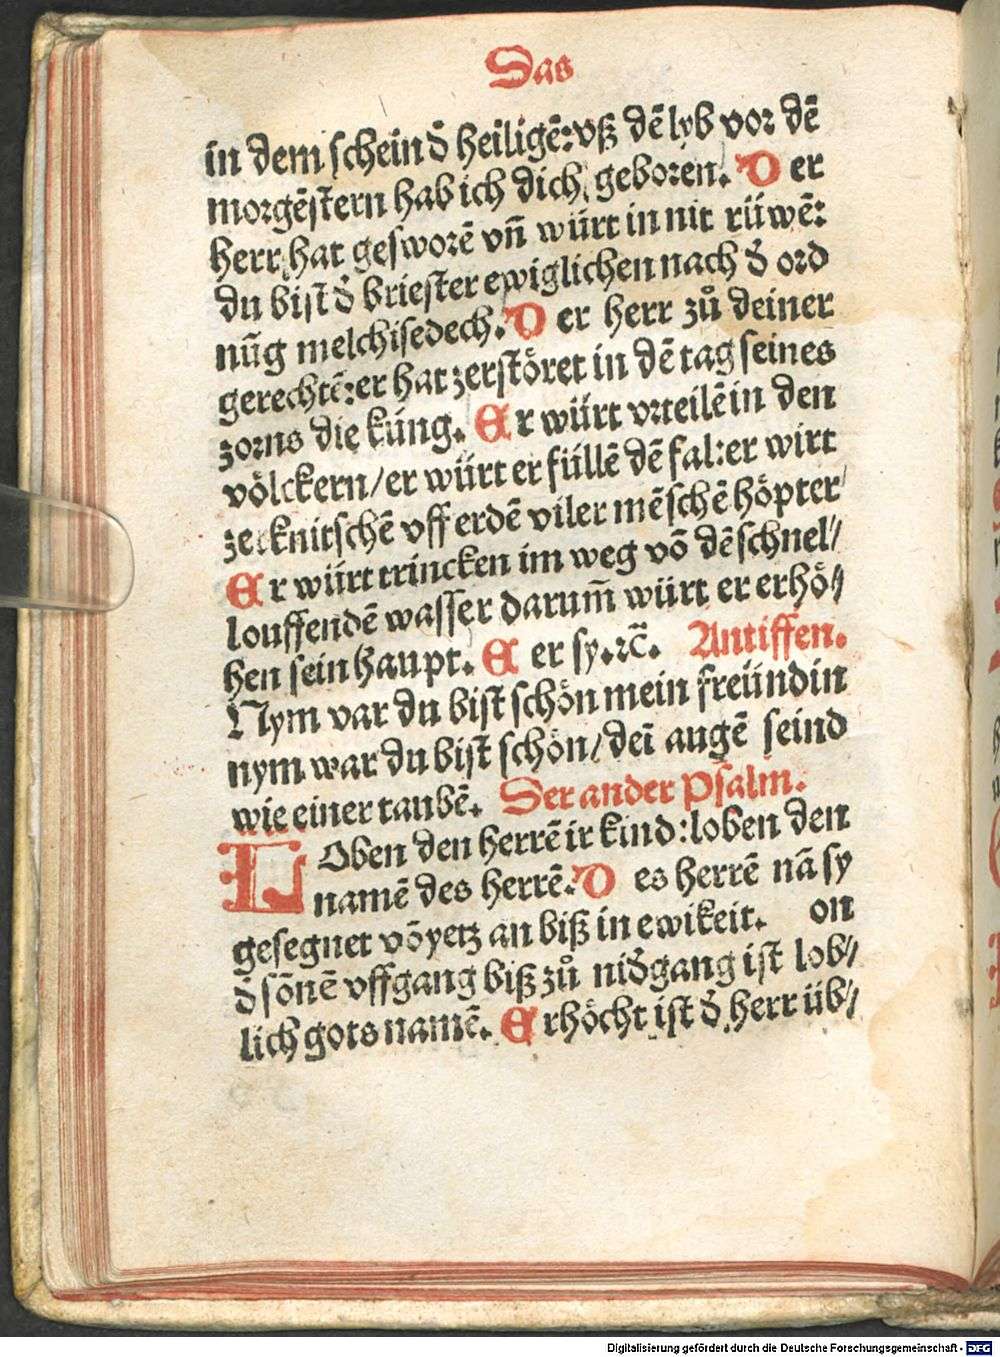 Das
in dem schein d̄ heiligē:vß dē lyb vor dē
morgēstern hab ich dich geboren. D er
herr hat gesworē vn̄ würt in nit rüwē:
du bist d̄ briester ewiglichen nach d̄ ord
nūg melchisedech. D er herr zů deiner
gerechtē:er hat zerstöret in dē tag seines
zorns die küng. E r würt vrteilē in den
völckern/er würt er füllē dē fal:er wirt
zerknitschē vff erdē viler mēschē höpter
E r würt trincken im weg vō dē schnel//
louffendē wasser darum̄ würt er erhö//
hen sein haupt. E er sy.ꝛc̄. Antiffen.
Nym var du bist schön mein freündin
nym war du bist schön/deī augē seind
wie einer taubē. Der ander Psalm.
L Oben den herrē ir kind:loben den
namē des herrē. D es herrē nā sy
gesegnet vō yetz an biß in ewikeit. on
d̄ sōnē vffgang biß zů nid̄gang ist lob//
lich gots namē. E rhöcht ist d̄ herr üb//
Digitalisierung gefördert durch die Deutsche Forschungsgemeinschaft - DFG